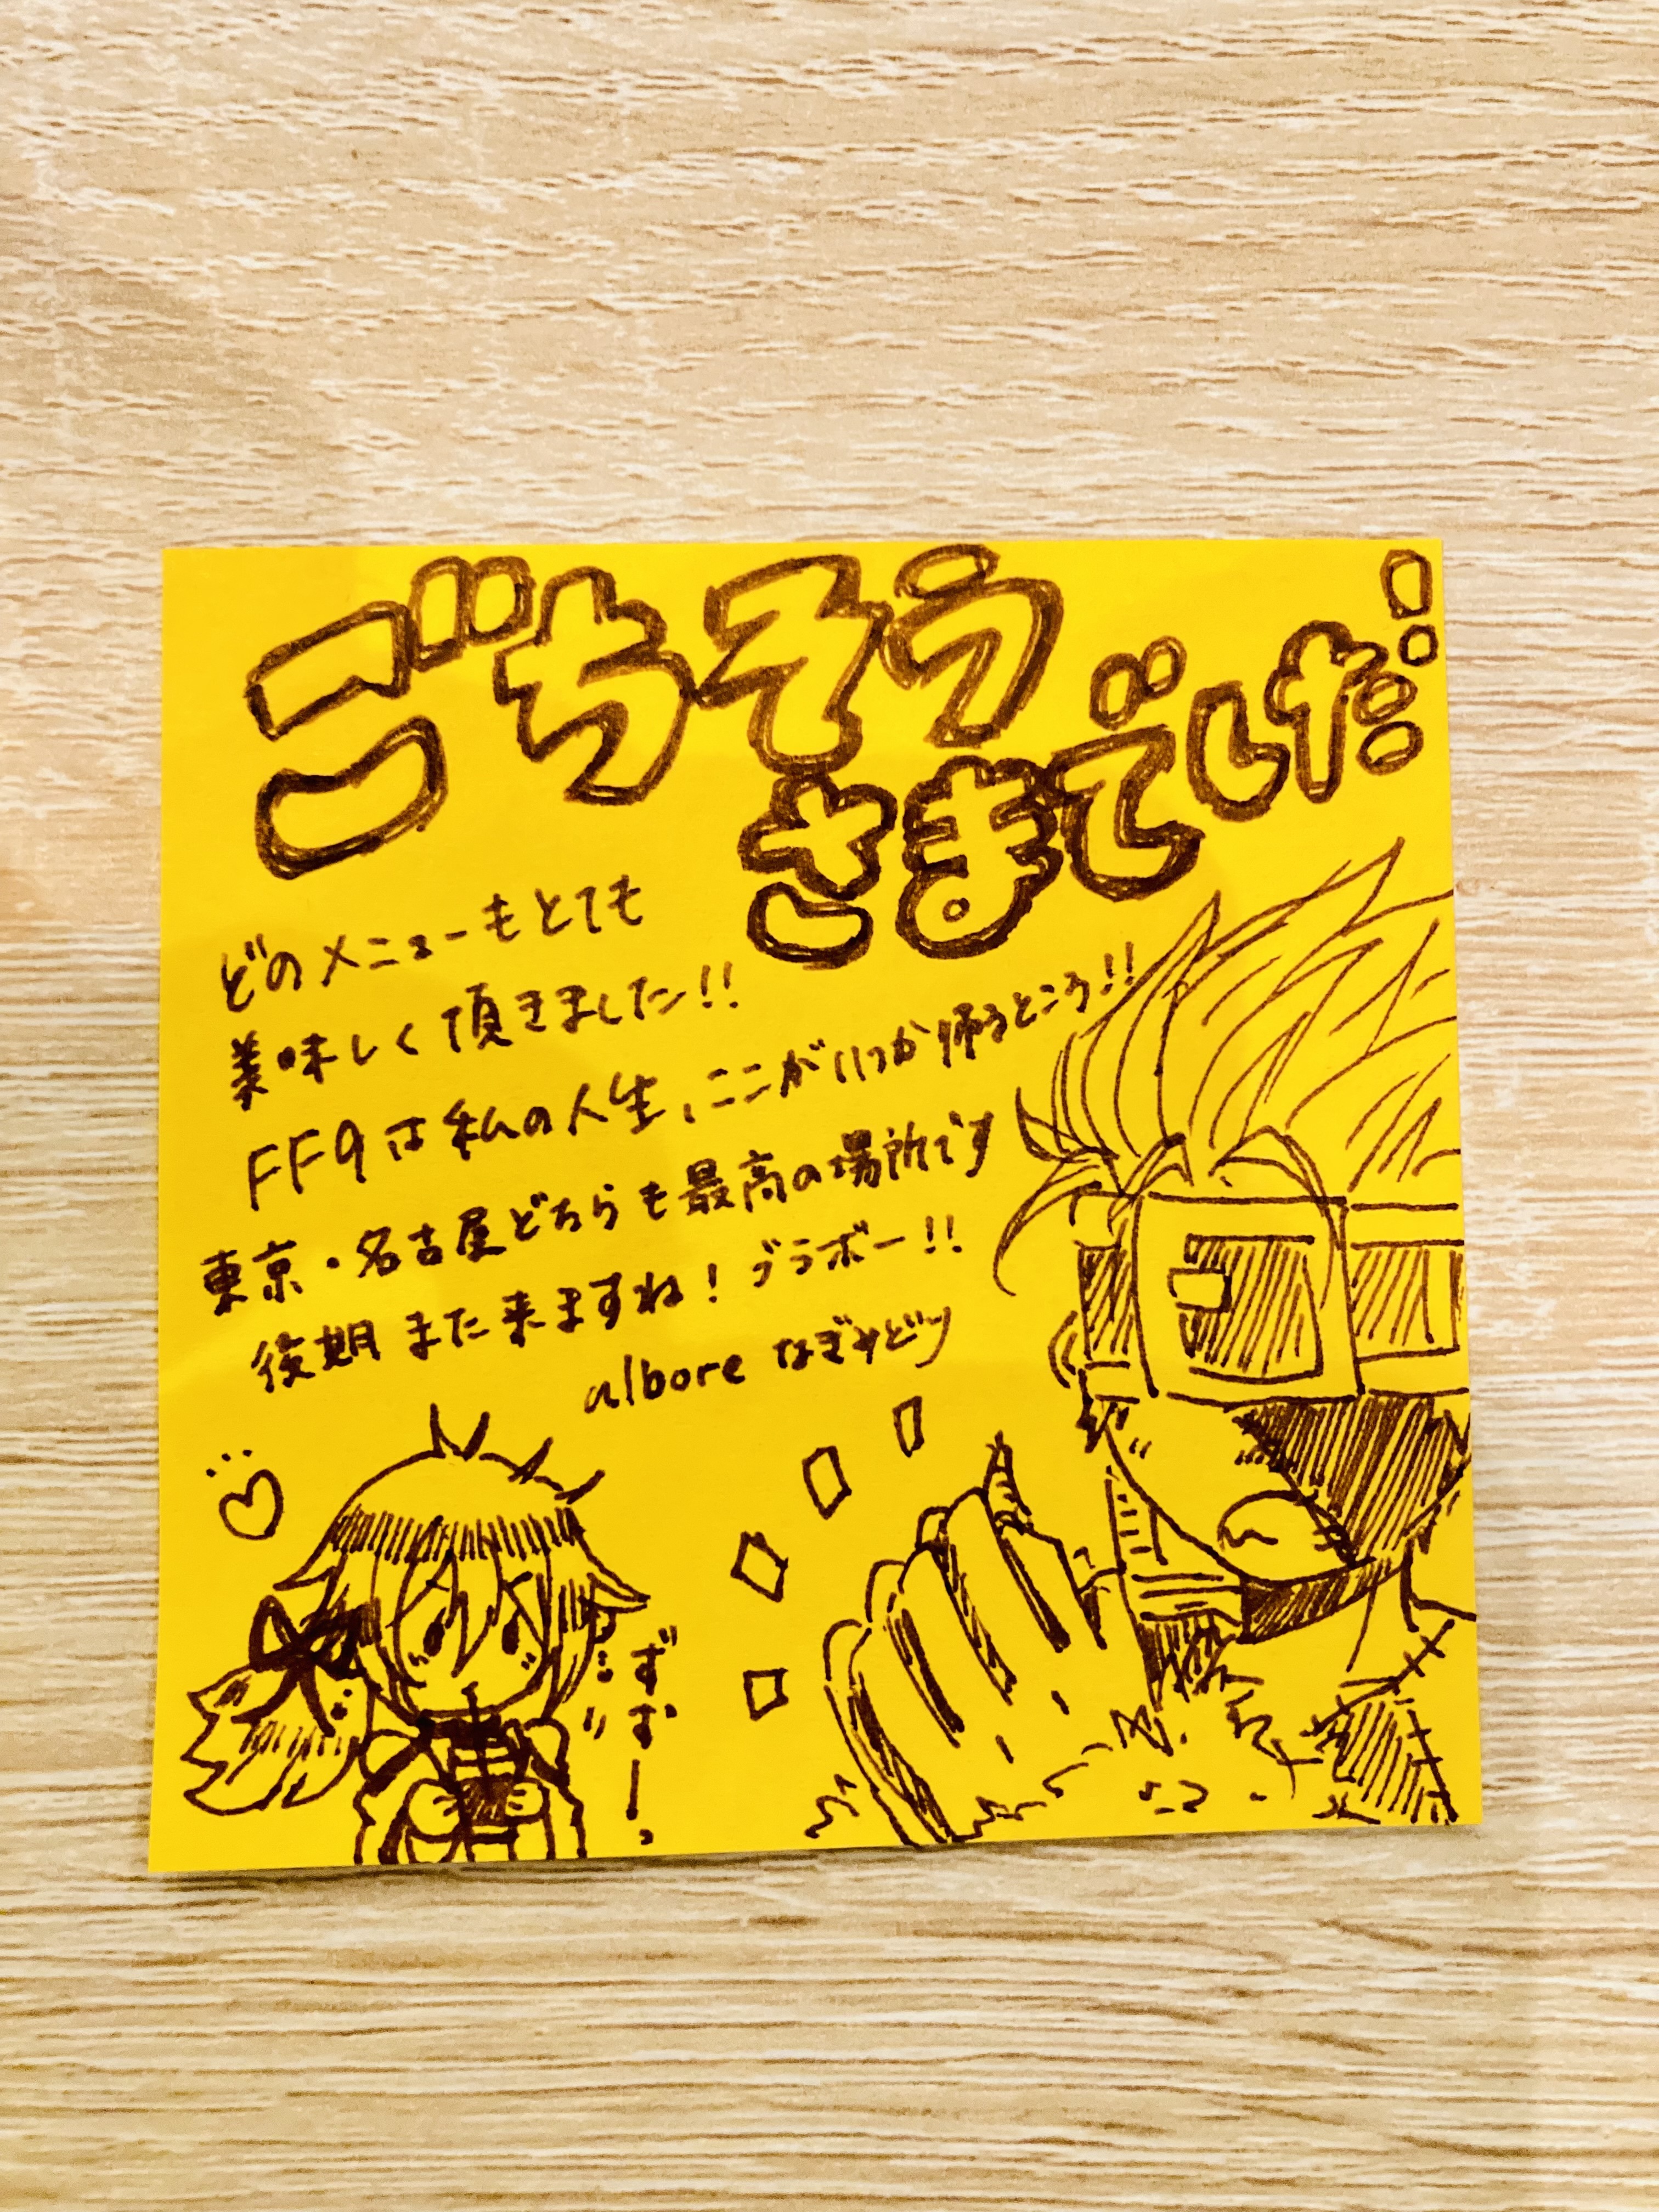 ごちそう
さまでした!!
どのメニューもとても
美味しく頂きました!!
FF9は私の人生、ここがいつか帰るところ!!
東京・名古屋どちらも最高の場所です
後期また来ますね!ブラボー!!
albore なぎやどり
ずず
ー